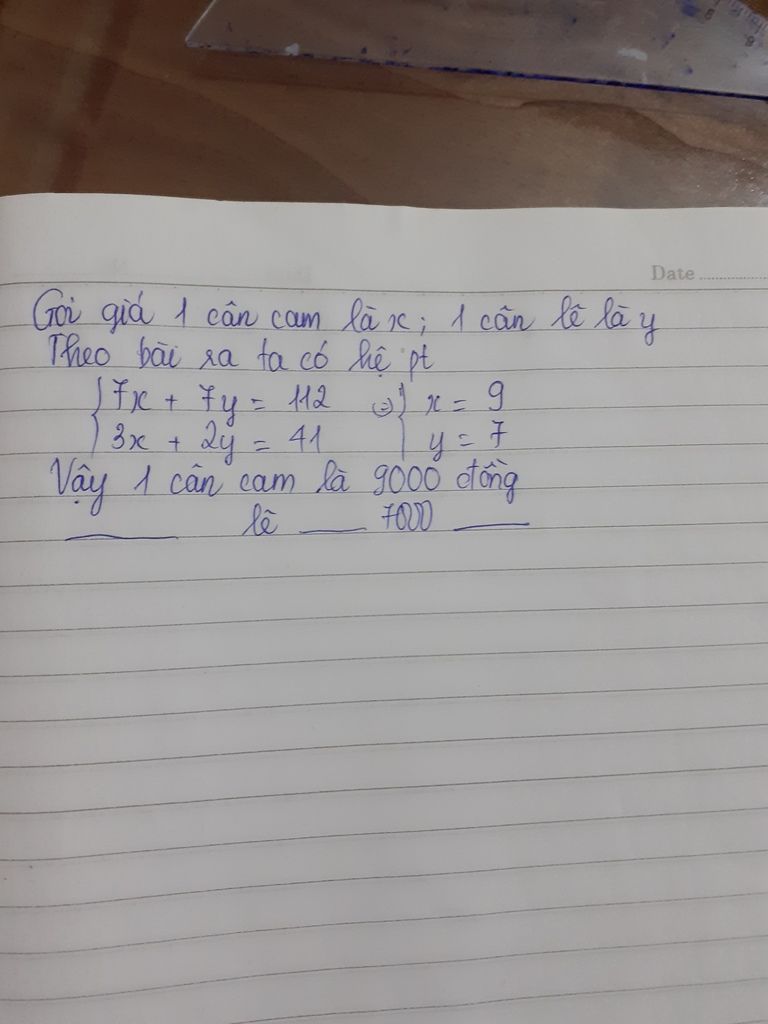 Date
Gọi giá 1 cân cam là x; 1 cân lê là y
Theo bài ra ta có hệ pt
{7x + 7y = 112 (=) { x = 9
3x + 2y = 41 y = 7
Vậy 1 cân cam là 9000 đồng
___ lê ___ 7000 ___